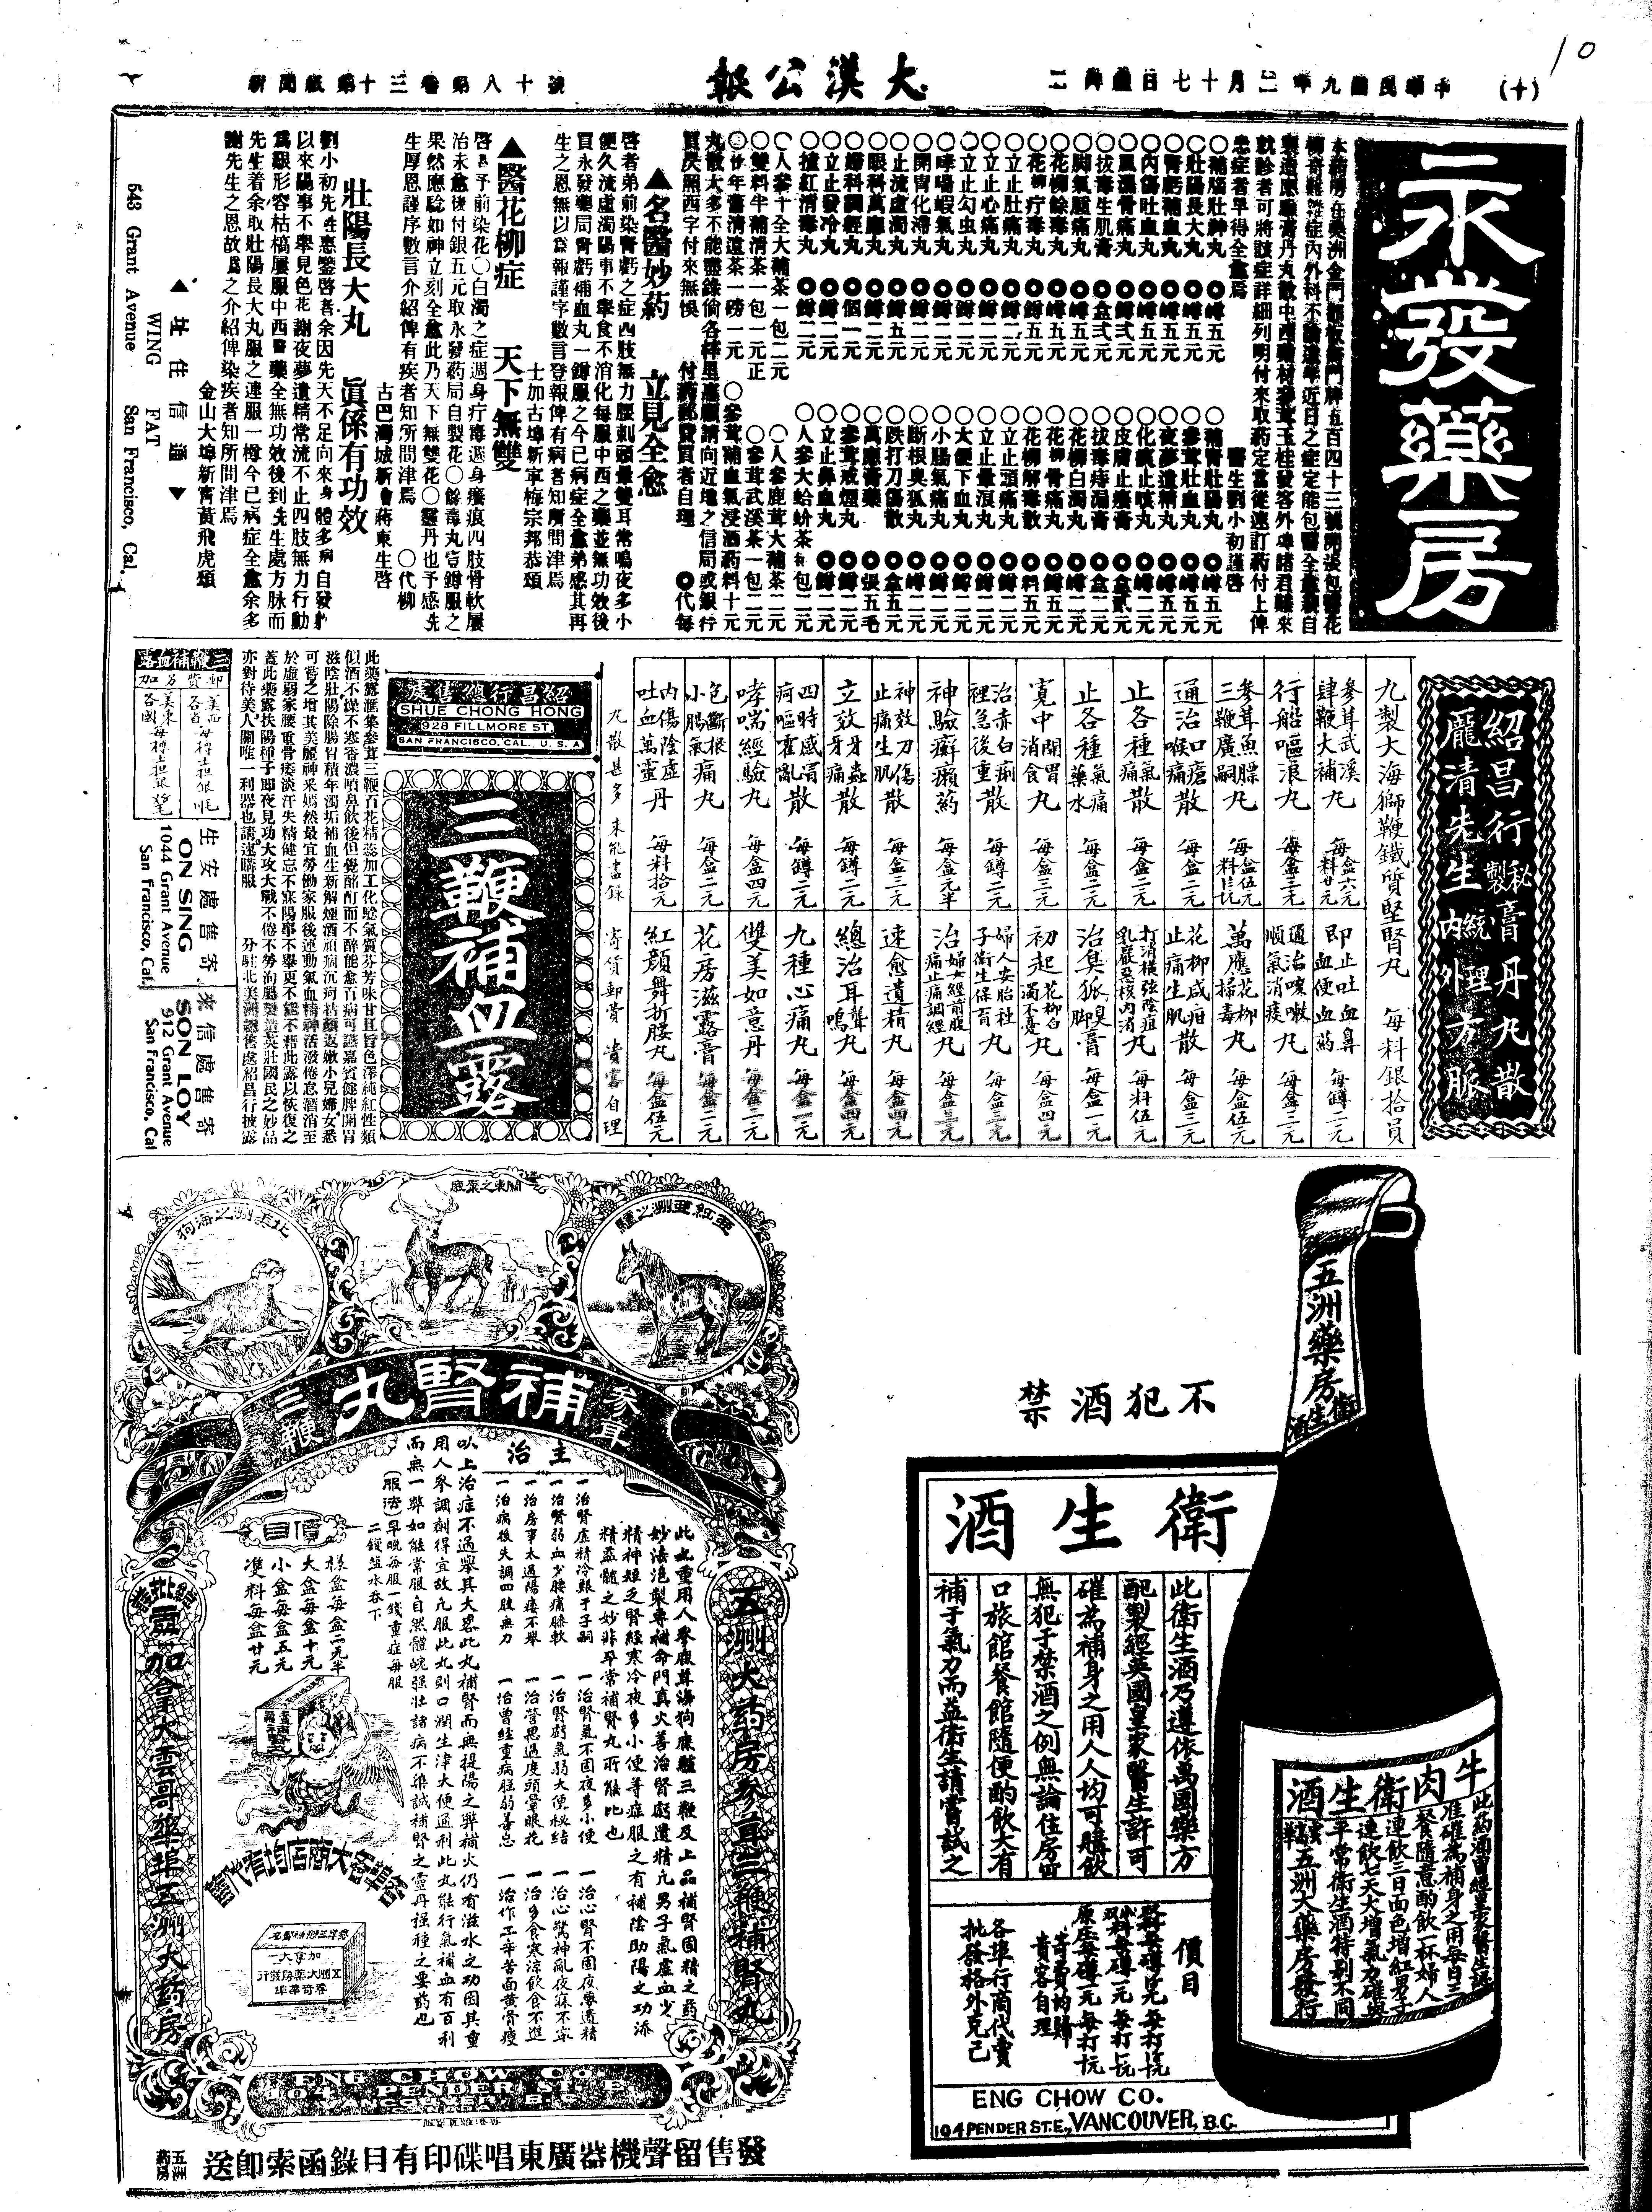 10
(十)
中華民國九年二月十七日禮拜二
大漢公報
新聞紙第十三卷第八十號
永發藥房
醫生劉小初謹啓
○補腦壯神丸 ○罇五元
○壯陽長大丸 ○罇五元
○腎虧補血丸 ○罇五元
○內傷吐血丸 ○罇五元
○風濕骨痛丸 ○罇弍元
○拔毒生肌膏 ○盒弍元
○脚氣腫痛丸 ○罇五元
○花柳餘毒丸 ○罇五元
○花柳疔毒丸 ○罇五元
○立止肚痛丸 ○罇二元
○立止心痛丸 ○罇二元
○立止勾虫丸 ○罇二元
○哮喘蝦氣丸 ○罇二元
○開胃化滯丸 ○罇二元
○止流虛濁丸 ○罇五元
○眼科萬應丸 ○罇二元
○婦科調經丸 ○個一元
○立止發冷丸 ○罇二元
○補腎壯陽丸 ○罇五元
○參茸壯血丸 ○罇五元
○夜夢遺精丸 ○罇五元
○化痰止咳丸 ○罇二元
○皮膚止癢膏 ○盒貳元
○拔毒痔漏膏 ○盒二元
○花柳白濁丸 ○罇二元
○花柳骨痛丸 ○罇五元
○花柳解毒散 ○料五元
○立止頭痛丸 ○罇二元
○立止暈浪丸 ○罇二元
○大便下血丸 ○罇二元
○小腸氣痛丸 ○罇二元
○斷根臭狐丸 ○罇二元
○跌打刀傷散 ○盒五元
○萬應膏藥 ○張五毛
○參茸戒煙丸 ○罇二元
○立止鼻血丸 ○罇二元
○人參十全大補茶一包二元
○人參鹿茸大補茶二元
○雙料半補清茶一包一元正
○參茸武溪茶一包二元
○參茸補血氣浸酒葯料十元
▲名醫妙葯 立見全愈
啓者弟前染腎虧之症四肢無力腰刺頭暈雙耳常鳴夜多小
便久流虛濁陽事不舉食不消化每服中西之藥並無功效後
買永發藥局腎虧補血丸一罇服之今已病症全愈弟感其再
生之恩無以爲報謹字數言登報俾有病者知所問津焉
士加古埠新寧梅宗邦恭頌
▲醫花柳症 天下無雙
果然應驗如神立刻全愈此乃天下無雙花○靈丹也予感先
生厚恩謹序數言介紹俾有疾者知所問津焉 ○代柳
古巴灣城新會蔣東生啓
壯陽長大丸 眞係有功效
劉小初先生惠鑒啓者余因先天不足向來身體多病自發身
以來陽事不舉見色花謝夜夢遺精常流不止四肢無力行動
爲艱形容枯槁屢服中西醫藥全無功效後到先生處方脉而
先生着余取壯陽長大丸服之連服一樽今已病症全愈余多
謝先生之恩故爲之介紹俾染疾者知所問津焉
金山大埠新寧黃飛虎頌
▲ 址住信通 ▼
WING FAT
543 Grant Avenue San Francisco, Cal.
紹昌行秘製膏丹丸散
龐清先生統理內外方脈
九製大海獅鞭鐵質堅腎丸 每料銀拾員
參茸武溪肆鞭大補丸 每盒六元 每料廿元
行船嘔浪丸 每盒三元
參茸魚膘三鞭廣嗣丸 每盒伍元
通治口瘡喉痛散 每盒二元
止各種氣痛散 每盒二元
止各種氣痛藥水 每盒二元
寬中開胃消食丸 每盒三元
治赤白痢裡急後重散 每罇二元
神驗癬癩葯 每盒元半
神效刀傷止痛生肌散 每盒三元
立效牙蟲牙痛散 每罇二元
四時感冒痾嘔霍亂散 每罇二元
哮喘經驗丸 每盒四元
包斷根小腸氣痛丸 每盒二元
內傷陰虛吐血萬靈丹 每料拾元
即止吐血鼻血便血葯 每罇二元
通治咳嗽順氣消痰丸 每盒三元
萬應花柳掃毒丸 每盒伍元
花柳咸疳止痛生肌散 每盒三元
打消橫弦陰疽乳巖惡核內消丸 每料伍元
治臭狐臭脚膏 每盒一元
初起花柳白濁不憂丸 每盒四元
婦人安胎社子衛生保百丸 每盒三元
治婦女經前腹痛止痛調經丸 每盒三元
速愈遺精丸 每盒四元
總治耳聾耳鳴丸 每盒四元
九種心痛丸 每盒一元
雙美如意丹 每盒二元
花房滋露膏 每盒二元
紅顏舞折腰丸 每盒伍元
丸散甚多 未能盡錄 寄貨郵費 貴客自理
紹昌行總售處
SHUE CHONG HONG
928 FILLMORE ST.
SAN FRANCISCO, CAL., U. S. A.
三鞭補血露
此藥露滙集參茸三鞭百花精蕊加工化騐氣質芬芳味甘且旨色澤純紅性類
似酒不燥不寒香濃噴鼻飲後但覺酩酊而不醉能愈百病可讌嘉賓健脾開胃
滋陰壯陽除腸胃積年濁垢補血生新解煙酒頑痾沉疴枯顏返嫩小兒婦女悉
可嘗之增其美麗神釆嫣然最宜勞働家服後運動氣血精神活潑倦怠潛消至
於虛弱家腰重骨痿淡汗失精健忘不寐陽事不舉更不能不藉此露以恢復之
蓋此藥露扶陽種子即夜見功大攻大戰不倦不勞洵屬製造英壯國民之妙品
亦對待美人關唯一利器也請速購服 分駐北美洲總售處紹昌行披露
三鞭補血露
郵費另加
寄售處安生
ON SING
1044 Grant Avenue
San Francisco, Cal.
寄售處信來
SON LOY
912 Grant Avenue
San Francisco, Cal
北美洲之海狗
關東之梁鹿
亞紅亞洲之驢
參茸 補腎丸 三鞭
主治
一治腎虛精冷艱于子嗣
一治腎弱血少腰痛膝軟
一治房事太過陽痿不舉
一治病後失調四肢無力
一治腎氣不固夜多小便
一治腎虧氣弱大便秘結
一治營思過度頭暈眼花
一治曾經重病胆弱善忘
一治心腎不固夜夢遺精
一治心驚神亂夜寐不寧
一治多食寒涼飲食不進
一治作工辛苦面黃骨瘦
此丸重用人參鹿茸海狗鹿驢三鞭及上品補腎固精之葯
妙法泡製專補命門真火善治腎虧遺精凢男子氣虛血少
精神短乏腎經寒冷夜多小便等症服之有補陰助陽之功添
精益髓之妙非平常補腎丸所能比也
以上治症不過舉其大畧此丸補腎而無提陽之弊補火仍有滋水之功因其重
用人參調劑得宜故凢服此丸則口潤生津大便通利此丸能行氣補血有百利
而無一弊如能常服自然體魄强壯諸病不染誠補腎之靈丹强種之要葯也
(服法)早晚每服一錢重症每服
二錢盐水吞下
價目
樣盒每盒二元半
大盒每盒十元
小盒每盒五元
雙料每盒廿元
五洲大葯房參茸三鞭補腎丸
總批發處加拿大雲哥華埠五洲大葯房
各埠華人大商店均有代售
ENG CHOW CO.
104 PENDER ST. E.
發售留聲機器廣東唱碟印有目錄函索即送
五洲葯房
不犯酒禁
衛生酒
此衛生酒乃遵依萬國藥方
配製經英國皇家醫生許可
確為補身之用人人均可購飲
無犯于禁酒之例無論住房留
口旅館餐館隨便酌飲大有
補于氣力而益衛生請嘗試之
價目
寄費均歸
貴客自理
各埠行商代賣
批發格外克己
ENG CHOW CO.
104 PENDER ST. E., VANCOUVER, B.C.
五洲藥房
衛生酒
牛肉衛生酒
此葯酒曾經皇家醫生認
准確為補身之用每日三
餐隨意酌飲一杯婦人
連飲三日面色增紅男子
連飲七天大增氣力確與
平常衛生酒特别不同
五洲大藥房發行